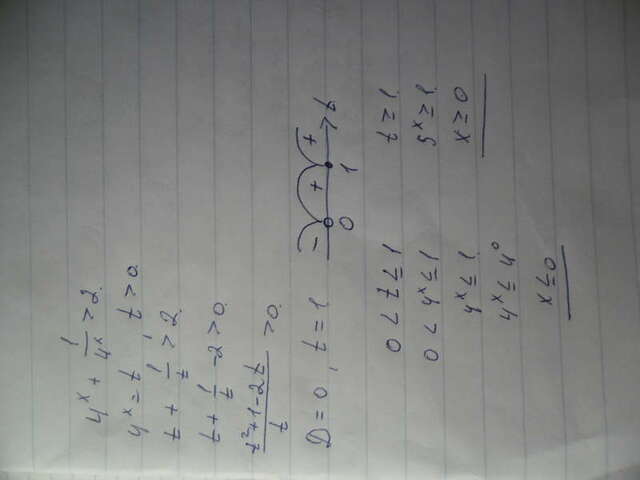 4^x + 1/4^x > 2
4^x = t, t > 0
t + 1/t > 2
t + 1/t - 2 > 0
(t² + 1 - 2t)/t > 0
D = 0, t = 1
- + + t
0 1
0 < t ≤ 1
0 < 4^x ≤ 1
4^x ≤ 1
4^x ≤ 4^0
x ≤ 0
t ≥ 1
5^x ≥ 1
x ≥ 0